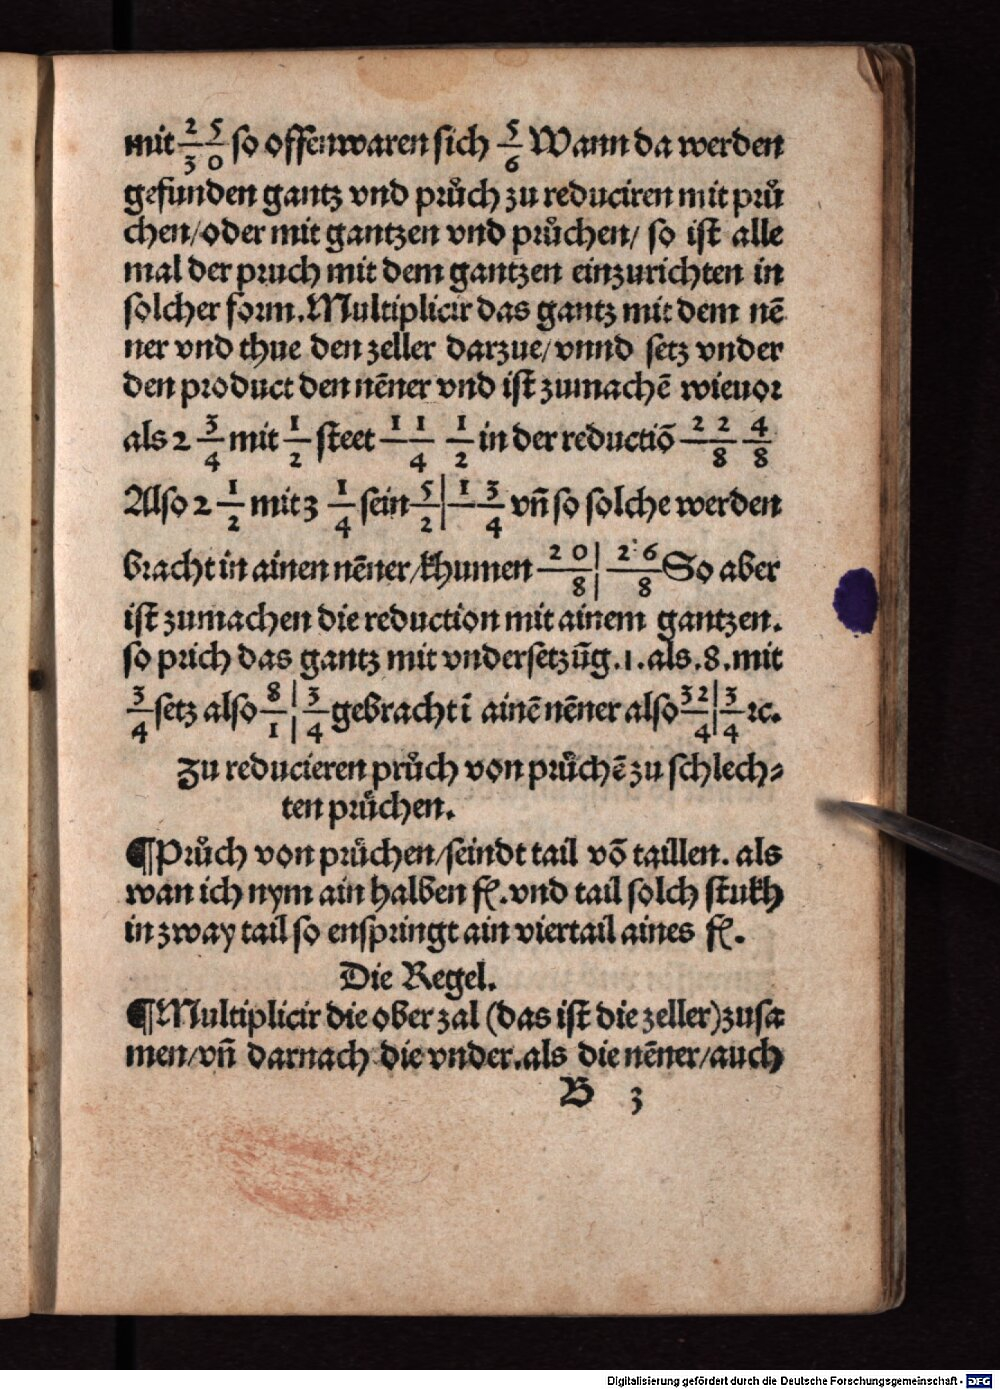 mit 25/30 so offenwaren sich 5/6 Wann da werden
gefunden gantz vnd průch zu reduciren mit prů
chen/oder mit gantzen vnd průchen/ so ist alle
mal der pruch mit dem gantzen einzurichten in
solcher form. Multiplicir das gantz mit dem nē
ner vnd thue den zeller darzue/ vnnd setz vnder
den product den nēner vnd ist zumachē wieuor
als 2 3/4 mit 1/2 steet 11/4 1/2 in der reductiō 22/8 4/8
Also 2 1/2 mit 3 1/4 sein 5/2 | 13/4 vn̄ so solche werden
bracht in ainen nēner/khumen 20/8 | 26/8 So aber
ist zumachen die reduction mit ainem gantzen.
so prich das gantz mit vndersetzūg .1. als .8. mit
3/4 setz also 8/1 | 3/4 gebracht ī ainē nēner also 32/4 | 3/4 ꝛc.
Zu reducieren průch von průchē zu schlech⸗
ten průchen.
¶Průch von průchen/seindt tail vō taillen. als
wan ich nym ain halben fl. vnd tail solch stukh
in zway tail so enspringt ain viertail aines fl.
Die Regel.
¶Multiplicir die ober zal (das ist die zeller) zusa
men/vn̄ darnach die vnder. als die nēner/auch
B 3
Digitalisierung gefördert durch die Deutsche Forschungsgemeinschaft - DFG